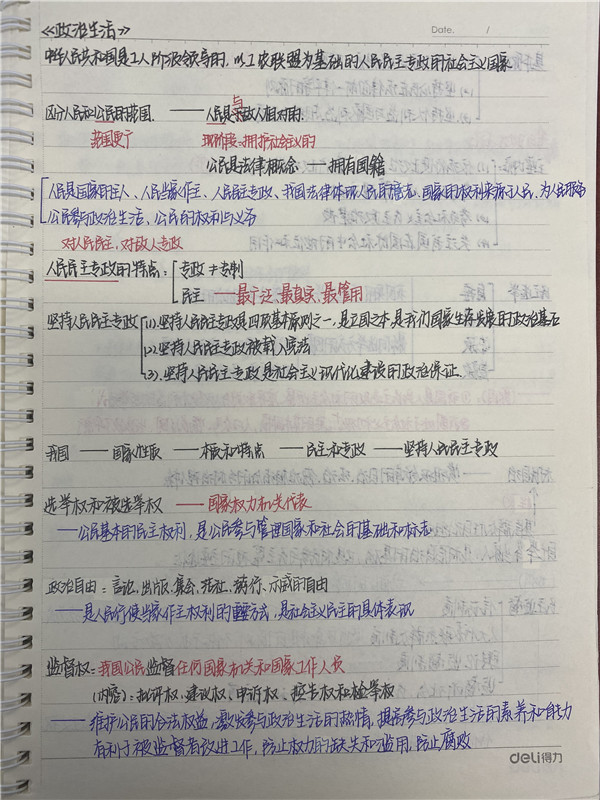 Date.        /
《政治生活》
中华人民共和国是工人阶级领导的，以工农联盟为基础的人民民主专政的社会主义国家
区分人民和公民的范围. —— 人民是与敌人相对的.
范围更广    现阶段:拥护社会主义的
公民是法律概念 —— 拥有国籍
人民是国家的主人、人民当家作主、人民民主专政、我国法律体现人民的意志、国家的权利来源于人民、为人民服务
公民参与政治生活、公民的权利与义务
对人民民主，对敌人专政
人民民主专政的特点： 专政≠专制
民主 —— 最广泛、最真实、最管用
坚持人民民主专政 (1).坚持人民民主专政是四项基本原则之一，是立国之本，是我们国家生存发展的政治基石
(2).坚持人民民主专政被载入宪法
(3).坚持人民民主专政是社会主义现代化建设的政治保证.
我国 —— 国家性质 —— 本质和特点 —— 民主和专政 —— 坚持人民民主专政
选举权和被选举权 —— 国家权力机关代表
—— 公民基本的民主权利，是公民参与管理国家和社会的基础和标志
政治自由：言论、出版、集会、结社、游行、示威的自由
—— 是人民行使当家作主权利的重要方式，是社会主义民主的具体表现
监督权：我国公民监督任何国家机关和国家工作人员
(内容)：批评权、建议权、申诉权、控告权和检举权
—— 维护公民的合法权益，激发参与政治生活的热情，提高参与政治生活的素养和能力
有利于被监督者改进工作，防止权力的缺失和滥用，防止腐败
deli得力